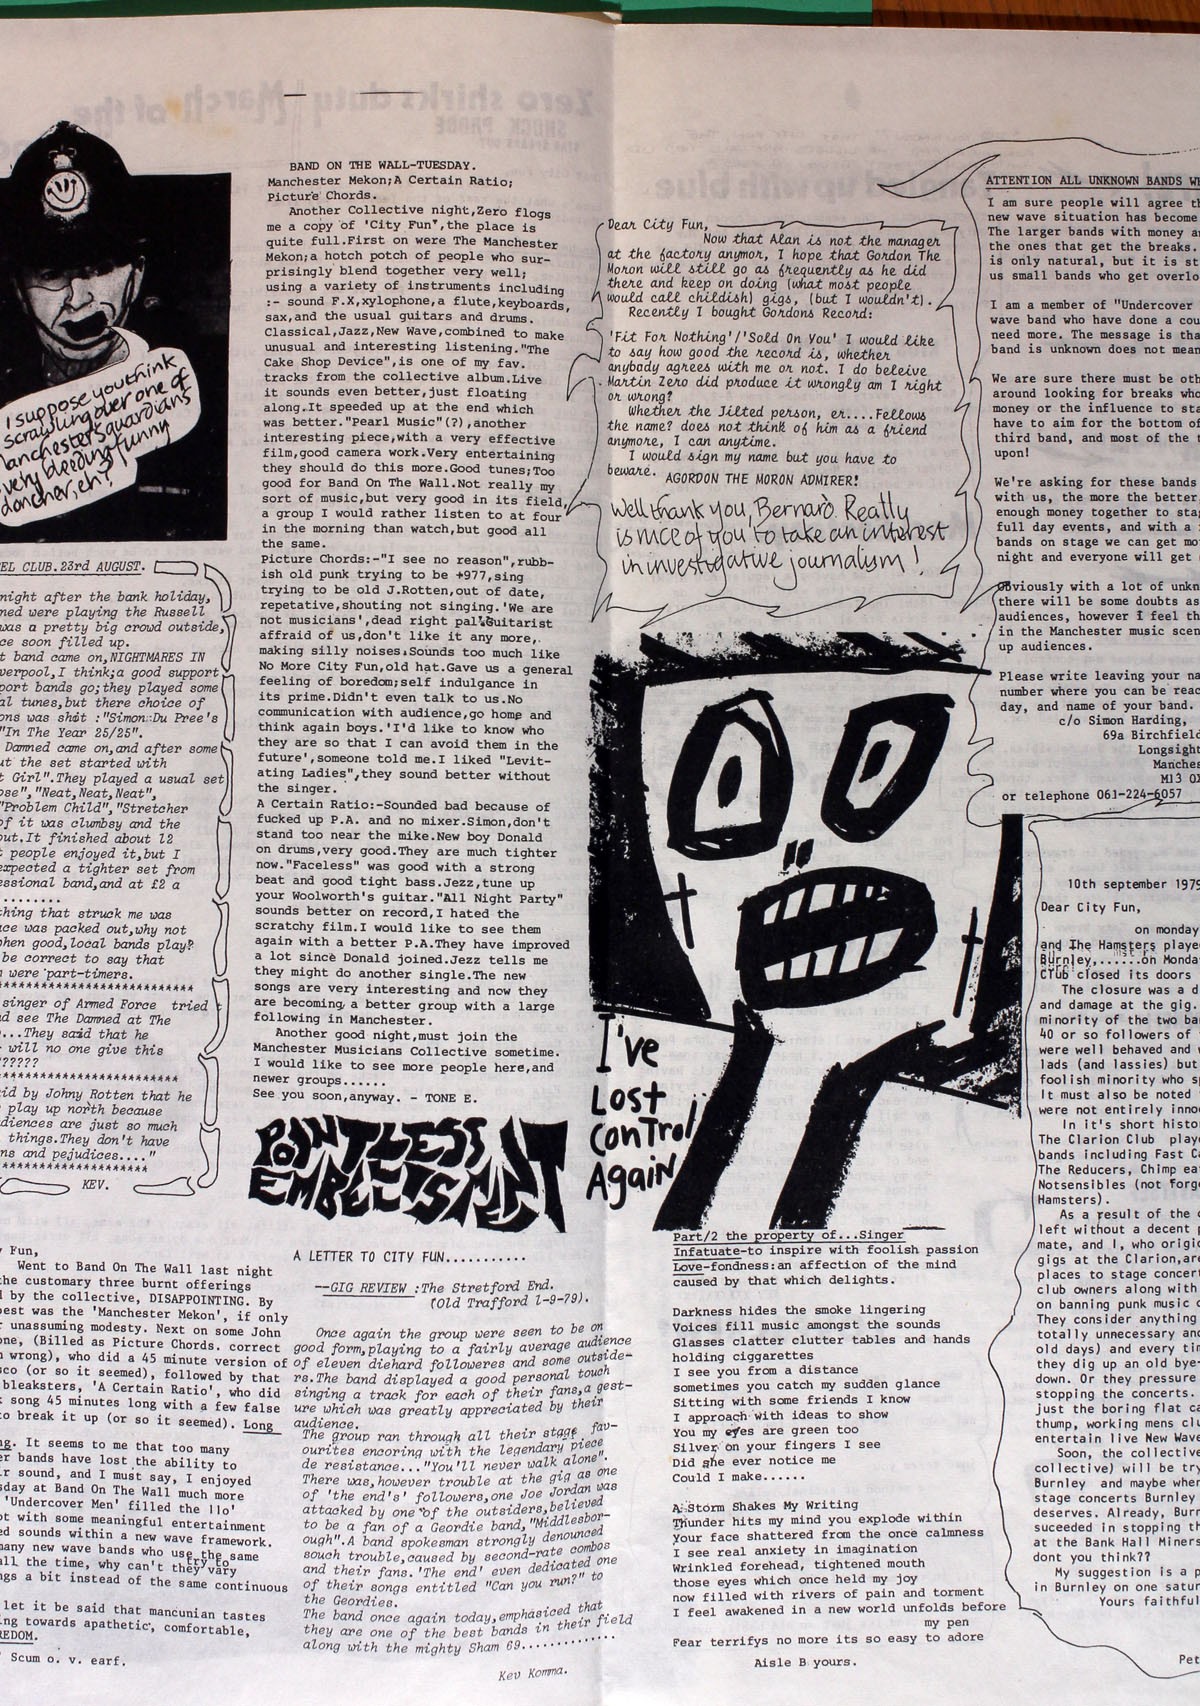 I suppose you think
scrawling over one of
Manchesters guardians
very bleeding funny
doncher, eh?
EL CLUB.23rd AUGUST.
night after the bank holiday,
ned were playing the Russell
was a pretty big crowd outside,
ce soon filled up.
t band came on,NIGHTMARES IN
verpool,I think;a good support
port bands go;they played some
al tunes,but there choice of
ons was shit :"Simon Du Pree's
"In The Year 25/25".
Damned came on,and after some
ut the set started with
t Girl".They played a usual set
ose","Neat,Neat,Neat",
"Problem Child","Stretcher
of it was clumbsy and the
out.It finished about 12
t people enjoyed it,but I
expected a tighter set from
essional band,and at £2 a
.........
thing that struck me was
ace was packed out,why not
when good,local bands play?
be correct to say that
n were part-timers.
*************************
singer of Armed Force tried t
d see The Damned at The
...They said that he
will no one give this
??????
*************************
id by Johny Rotten that he
play up north because
diences are just so much
things.They don't have
ns and pejudices...."
*******************
KEV.
y Fun,
Went to Band On The Wall last night
he customary three burnt offerings
d by the collective, DISAPPOINTING. By
best was the 'Manchester Mekon', if only
r unassuming modesty. Next on some John
one, (Billed as Picture Chords. correct
m wrong), who did a 45 minute version of
sco (or so it seemed), followed by that
bleaksters, 'A Certain Ratio', who did
song 45 minutes long with a few false
to break it up (or so it seemed). Long
ng. It seems to me that too many
er bands have lost the ability to
ir sound, and I must say, I enjoyed
sday at Band On The Wall much more
'Undercover Men' filled the llo'
ot with some meaningful entertainment
ed sounds within a new wave framework.
many new wave bands who use the same
all the time, why can't they try to vary
ngs a bit instead of the same continuous
let it be said that mancunian tastes
ing towards apathetic, comfortable,
REDOM.
Scum o. v. earf.
BAND ON THE WALL-TUESDAY.
Manchester Mekon;A Certain Ratio;
Picture Chords.
Another Collective night,Zero flogs
me a copy of 'City Fun",the place is
quite full.First on were The Manchester
Mekon;a hotch potch of people who sur-
prisingly blend together very well;
using a variety of instruments including
:- sound F.X,xylophone,a flute,keyboards,
sax,and the usual guitars and drums.
Classical,Jazz,New Wave,combined to make
unusual and interesting listening."The
Cake Shop Device",is one of my fav.
tracks from the collective album.Live
it sounds even better,just floating
along.It speeded up at the end which
was better."Pearl Music"(?),another
interesting piece,with a very effective
film,good camera work.Very entertaining
they should do this more.Good tunes;Too
good for Band On The Wall.Not really my
sort of music,but very good in its field,
a group I would rather listen to at four
in the morning than watch,but good all
the same.
Picture Chords:-"I see no reason",rubb-
ish old punk trying to be +977,sing
trying to be old J.Rotten,out of date,
repetative,shouting not singing.'We are
not musicians',dead right pal.Guitarist
affraid of us,don't like it any more,
making silly noises.Sounds too much like
No More City Fun,old hat.Gave us a general
feeling of boredom;self indulgance in
its prime.Didn't even talk to us.No
communication with audience,go home and
think again boys.'I'd like to know who
they are so that I can avoid them in the
future',someone told me.I liked "Levit-
ating Ladies",they sound better without
the singer.
A Certain Ratio:-Sounded bad because of
fucked up P.A. and no mixer.Simon,don't
stand too near the mike.New boy Donald
on drums,very good.They are much tighter
now."Faceless" was good with a strong
beat and good tight bass.Jezz,tune up
your Woolworth's guitar."All Night Party"
sounds better on record,I hated the
scratchy film.I would like to see them
again with a better P.A.They have improved
a lot since Donald joined.Jezz tells me
they might do another single.The new
songs are very interesting and now they
are becoming a better group with a large
following in Manchester.
Another good night,must join the
Manchester Musicians Collective sometime.
I would like to see more people here,and
newer groups......
See you soon,anyway. - TONE E.
POINTLESS
EMBELLISHMENT
A LETTER TO CITY FUN...........
---GIG REVIEW :The Stretford End.
(Old Trafford 1-9-79).
Once again the group were seen to be on
good form,playing to a fairly average audience
of eleven diehard followeres and some outside-
rs.The band displayed a good personal touch
singing a track for each of their fans,a gest-
ure which was greatly appreciated by their
audience.
The group ran through all their stage fav-
ourites encoring with the legendary piece
de resistance..."You'll never walk alone".
There was,however trouble at the gig as one
of 'the end's' followers,one Joe Jordan was
attacked by one of the outsiders,believed
to be a fan of a Geordie band,"Middlesbor-
ough".A band spokesman strongly denounced
souch trouble,caused by second-rate combos
and their fans.'The end' even dedicated one
of their songs entitled "Can you run?" to
the Geordies.
The band once again today,emphasiced that
they are one of the best bands in their field
along with the mighty Sham 69.............
Kev Komma.
Dear City Fun,
Now that Alan is not the manager
at the factory anymor, I hope that Gordon The
Moron will still go as frequently as he did
there and keep on doing (what most people
would call childish) gigs, (but I wouldn't).
Recently I bought Gordons Record:
'Fit For Nothing'/'Sold On You' I would like
to say how good the record is, whether
anybody agrees with me or not. I do beleive
Martin Zero did produce it wrongly am I right
or wrong?
Whether the Jilted person, er....Fellows
the name? does not think of him as a friend
anymore, I can anytime.
I would sign my name but you have to
beware.
AGORDON THE MORON ADMIRER!
Well thank you, Bernard. Really
is nice of you to take an interest
in investigative journalism!
I've
Lost
Control
Again
Part/2 the property of...Singer
Infatuate-to inspire with foolish passion
Love-fondness:an affection of the mind
caused by that which delights.
Darkness hides the smoke lingering
Voices fill music amongst the sounds
Glasses clatter clutter tables and hands
holding ciggarettes
I see you from a distance
sometimes you catch my sudden glance
Sitting with some friends I know
I approach with ideas to show
You my eyes are green too
Silver on your fingers I see
Did she ever notice me
Could I make......
A Storm Shakes My Writing
Thunder hits my mind you explode within
Your face shattered from the once calmness
I see real anxiety in imagination
Wrinkled forehead, tightened mouth
those eyes which once held my joy
now filled with rivers of pain and torment
I feel awakened in a new world unfolds before
my pen
Fear terrifys no more its so easy to adore
Aisle B yours.
ATTENTION ALL UNKNOWN BANDS W
I am sure people will agree th
new wave situation has become
The larger bands with money a
the ones that get the breaks.
is only natural, but it is st
us small bands who get overlo
I am a member of "Undercover
wave band who have done a cou
need more. The message is tha
band is unknown does not mean
We are sure there must be oth
around looking for breaks who
money or the influence to sta
have to aim for the bottom of
third band, and most of the t
upon!
We're asking for these bands
with us, the more the better
enough money together to stag
full day events, and with a
bands on stage we can get mo
night and everyone will get
obviously with a lot of unkn
there will be some doubts as
audiences, however I feel th
in the Manchester music scen
up audiences.
Please write leaving your na
number where you can be reac
day, and name of your band.
c/o Simon Harding,
69a Birchfield
Longsight
Manches
M13 0
or telephone 061-224-6057
10th september 1979
Dear City Fun,
on monday
and The Hamsters playe
Burnley,......on Monda
Club closed its doors
The closure was a d
and damage at the gig.
minority of the two ba
40 or so followers of
were well behaved and
lads (and lassies) but
foolish minority who s
It must also be noted
were not entirely inno
In it's short histor
The Clarion Club playe
bands including Fast Ca
The Reducers, Chimp ea
Notsensibles (not forg
Hamsters).
As a result of the c
left without a decent p
mate, and I, who origi
gigs at the Clarion,are
places to stage concer
club owners along with
on banning punk music
They consider anything
totally unnecessary and
old days) and every tim
they dig up an old bye-
down. Or they pressure
stopping the concerts.
just the boring flat ca
thump, working mens clu
entertain live New Wave
Soon, the collective
collective) will be try
Burnley and maybe when
stage concerts Burnley
deserves. Already, Burn
suceeded in stopping th
at the Bank Hall Miners
dont you think??
My suggestion is a p
in Burnley on one satu
Yours faithful
Pet